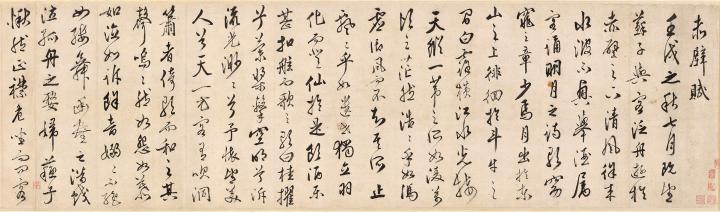 赤壁賦
壬戌之秋七月既望
蘇子與客泛舟遊於
赤壁之下清風徐來
水波不興舉酒屬
客誦明月之詩歌窈
窕之章少焉月出於東
山之上徘徊於斗牛之
間白露橫江水光接
天縱一葦之所如凌萬
頃之茫然浩浩乎如馮
虛御風而不知其所止
飄飄乎如遺世獨立羽
化而登仙於是飲酒樂
甚扣舷而歌之歌曰桂櫂
兮蘭槳擊空明兮泝
流光渺渺兮予懷望美
人兮天一方客有吹洞
簫者倚歌而和之其
聲嗚嗚然如怨如慕
如泣如訴餘音嫋嫋不絕
如縷舞幽壑之潛蛟
泣孤舟之嫠婦蘇子
愀然正襟危坐而問客